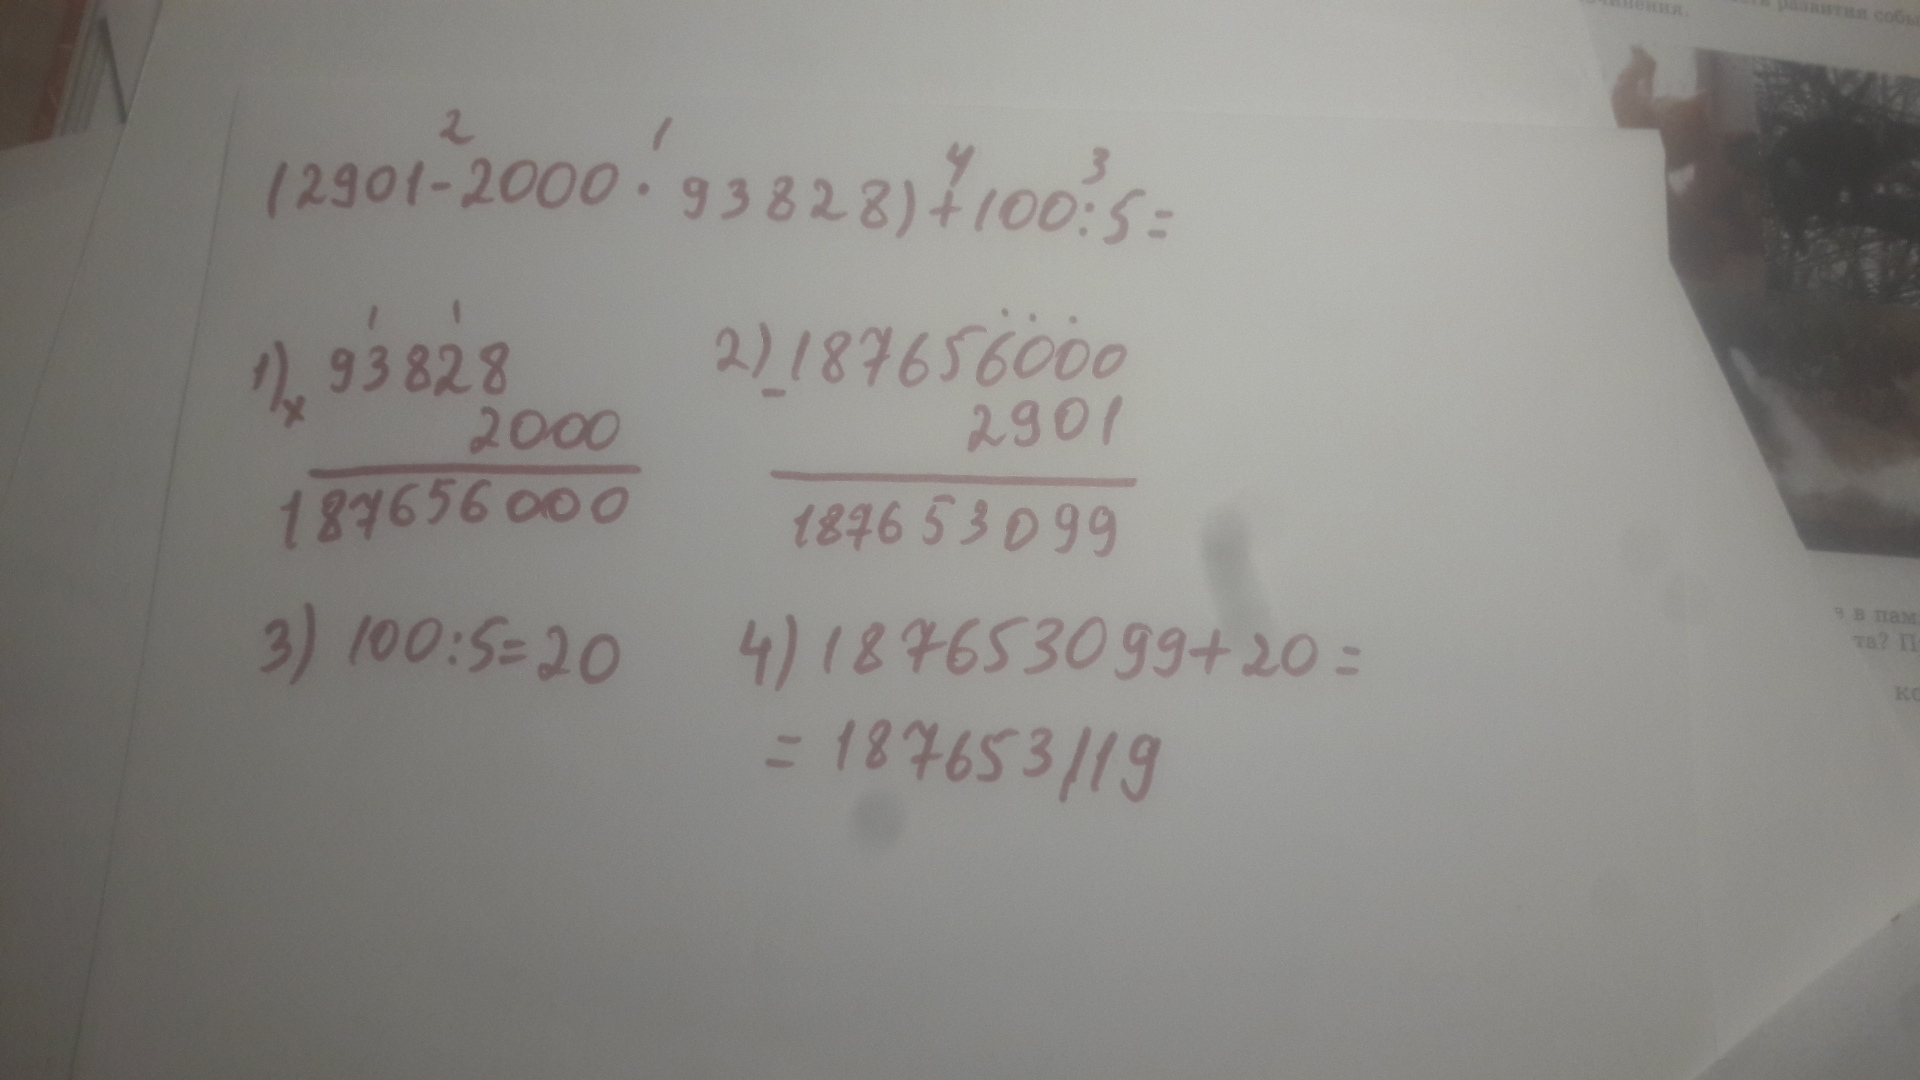 чинения.
развития собы
2 1 4 3
(2901-2000·93828)+100:5=
1 1
1) × 93828
2000
187656000
2) - 187656000
2901
187653099
3) 100:5=20
4) 187653099+20=
= 187653119
в пам
та? П
ко